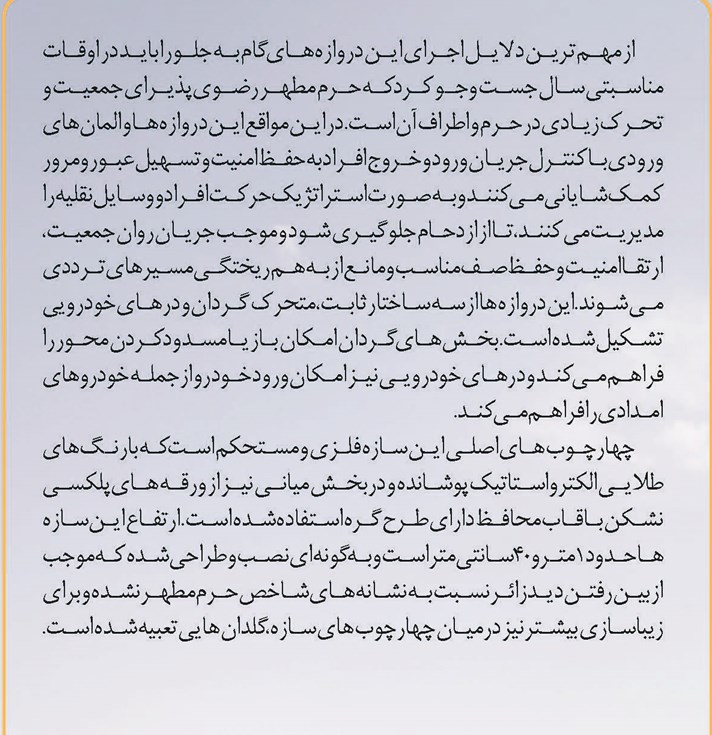 از مهم‌ترین دلایل اجرای این دروازه‌های گام به جلو را باید در اوقات
مناسبتی سال جست‌وجو کرد که حرم مطهر رضوی پذیرای جمعیت و
تحرک زیادی در حرم و اطراف آن است. در این مواقع این دروازه‌ها و المان‌های
ورودی با کنترل جریان ورود و خروج افراد به حفظ امنیت و تسهیل عبور و مرور
کمک شایانی می‌کنند و به صورت استراتژیک حرکت افراد و وسایل نقلیه را
مدیریت می‌کنند، تا از ازدحام جلوگیری شود و موجب جریان روان جمعیت،
ارتقا امنیت و حفظ صف مناسب و مانع از به هم ریختگی مسیرهای ترددی
می‌شوند. این دروازه‌ها از سه ساختار ثابت، متحرک گردان و درهای خودرویی
تشکیل شده است. بخش‌های گردان امکان باز یا مسدود کردن محور را
فراهم می‌کند و درهای خودرویی نیز امکان ورود خودرو از جمله خودروهای
امدادی را فراهم می‌کند.
چهارچوب‌های اصلی این سازه فلزی و مستحکم است که با رنگ‌های
طلایی الکترواستاتیک پوشانده و در بخش میانی نیز از ورقه‌های پلکسی
نشکن با قاب محافظ دارای طرح گره استفاده شده است. ارتفاع این سازه
ها حدود ۱ متر و ۴۰ سانتی متر است و به گونه‌ای نصب و طراحی شده که موجب
از بین رفتن دید زائر نسبت به نشانه‌های شاخص حرم مطهر نشده و برای
زیباسازی بیشتر نیز در میان چهارچوب‌های سازه، گلدان‌هایی تعبیه شده است.